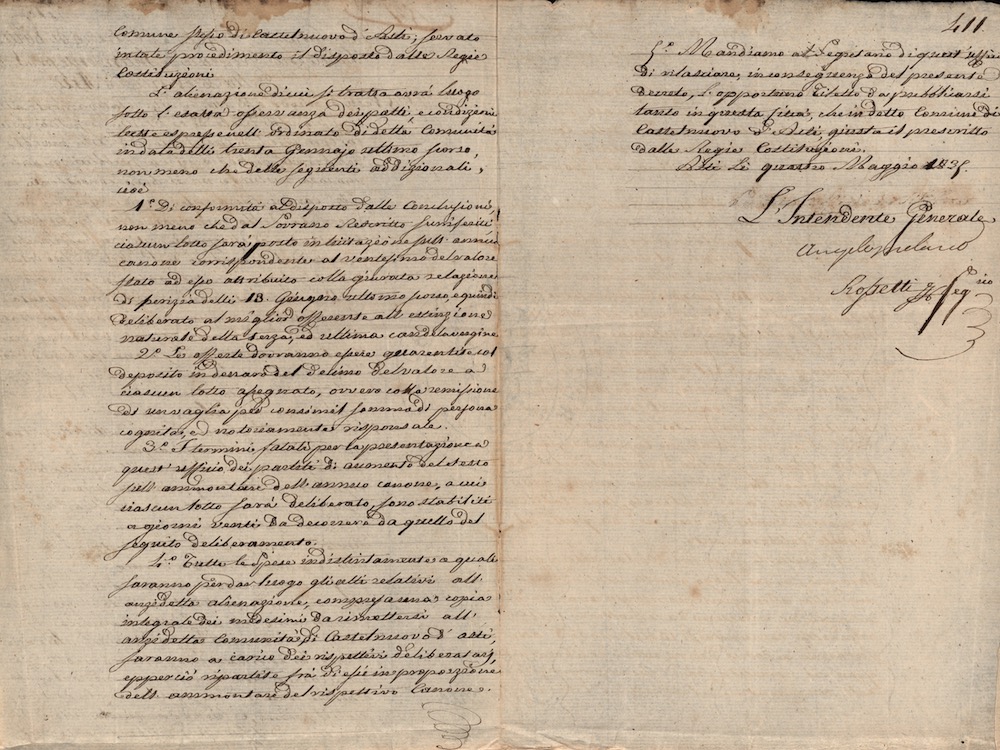 Comune stesso di Castelnuovo d'Asti, servato
in tale procedimento il disposto dalle Regie
Costituzioni
L'alienazione di cui si tratta avrà luogo
sotto l'esatta osservanza dei patti, e condizioni
lette espresse nell'Ordinato di detta Comunità
in data delli trenta Gennajo ultimo scorso,
non meno che delle seguenti addizionali,
cioè
1.° Di conformità al disposto dalle Conclusioni,
non meno che dal Sovrano Rescritto surriferiti
ciascun lotto sarà posto in licitazione sull'annuo
canone corrispondente al ventesimo del valore
stato ad esso attribuito colla giurata relazione
di perizia delli 18. Giugno ultimo scorso, e quindi
deliberato al miglior offerente all'estinzione
naturale della terza, ed ultima candela vergine
2.° Le offerte dovranno essere guarentite col
deposito in denaro del decimo del valore a
ciascun lotto assegnato, ovvero colla remissione
di un vaglia per consimil somma di persona
cognita, e notoriamente risponsale.
3.° I termini fatali per la presentazione a
quest'uffizio dei partiti di aumento del sesto
sull'ammontare dell'annuo canone, a cui
ciascun lotto sarà deliberato, sono stabiliti
a giorni venti da decorrere da quello del
seguito deliberamento.
4.° Tutte le spese indistintamente a quali
saranno per dar luogo gli atti relativi all'
anzidetta alienazione, compresa una copia
integrale dei medesimi da rimettersi all'
anzidetta Comunità di Castelnuovo d'Asti,
saranno a carico dei rispettivi deliberatarj
epperciò ripartite frà di essi in proporzione
dell'ammontare del rispettivo Canone.
411
5.° Mandiamo al Segretaro di quest'uffizio
di rilasciare, in conseguenza del presente
Decreto, l'opportuno Tiletto da pubblicarsi
tanto in questa Città, che in detto Comune di
Castelnuovo d'Asti, giusta il prescritto
dalle Regie Costituzioni.
Asti Li quattro Maggio 1835.
L'Intendente Generale
Rosetti Seg.rio